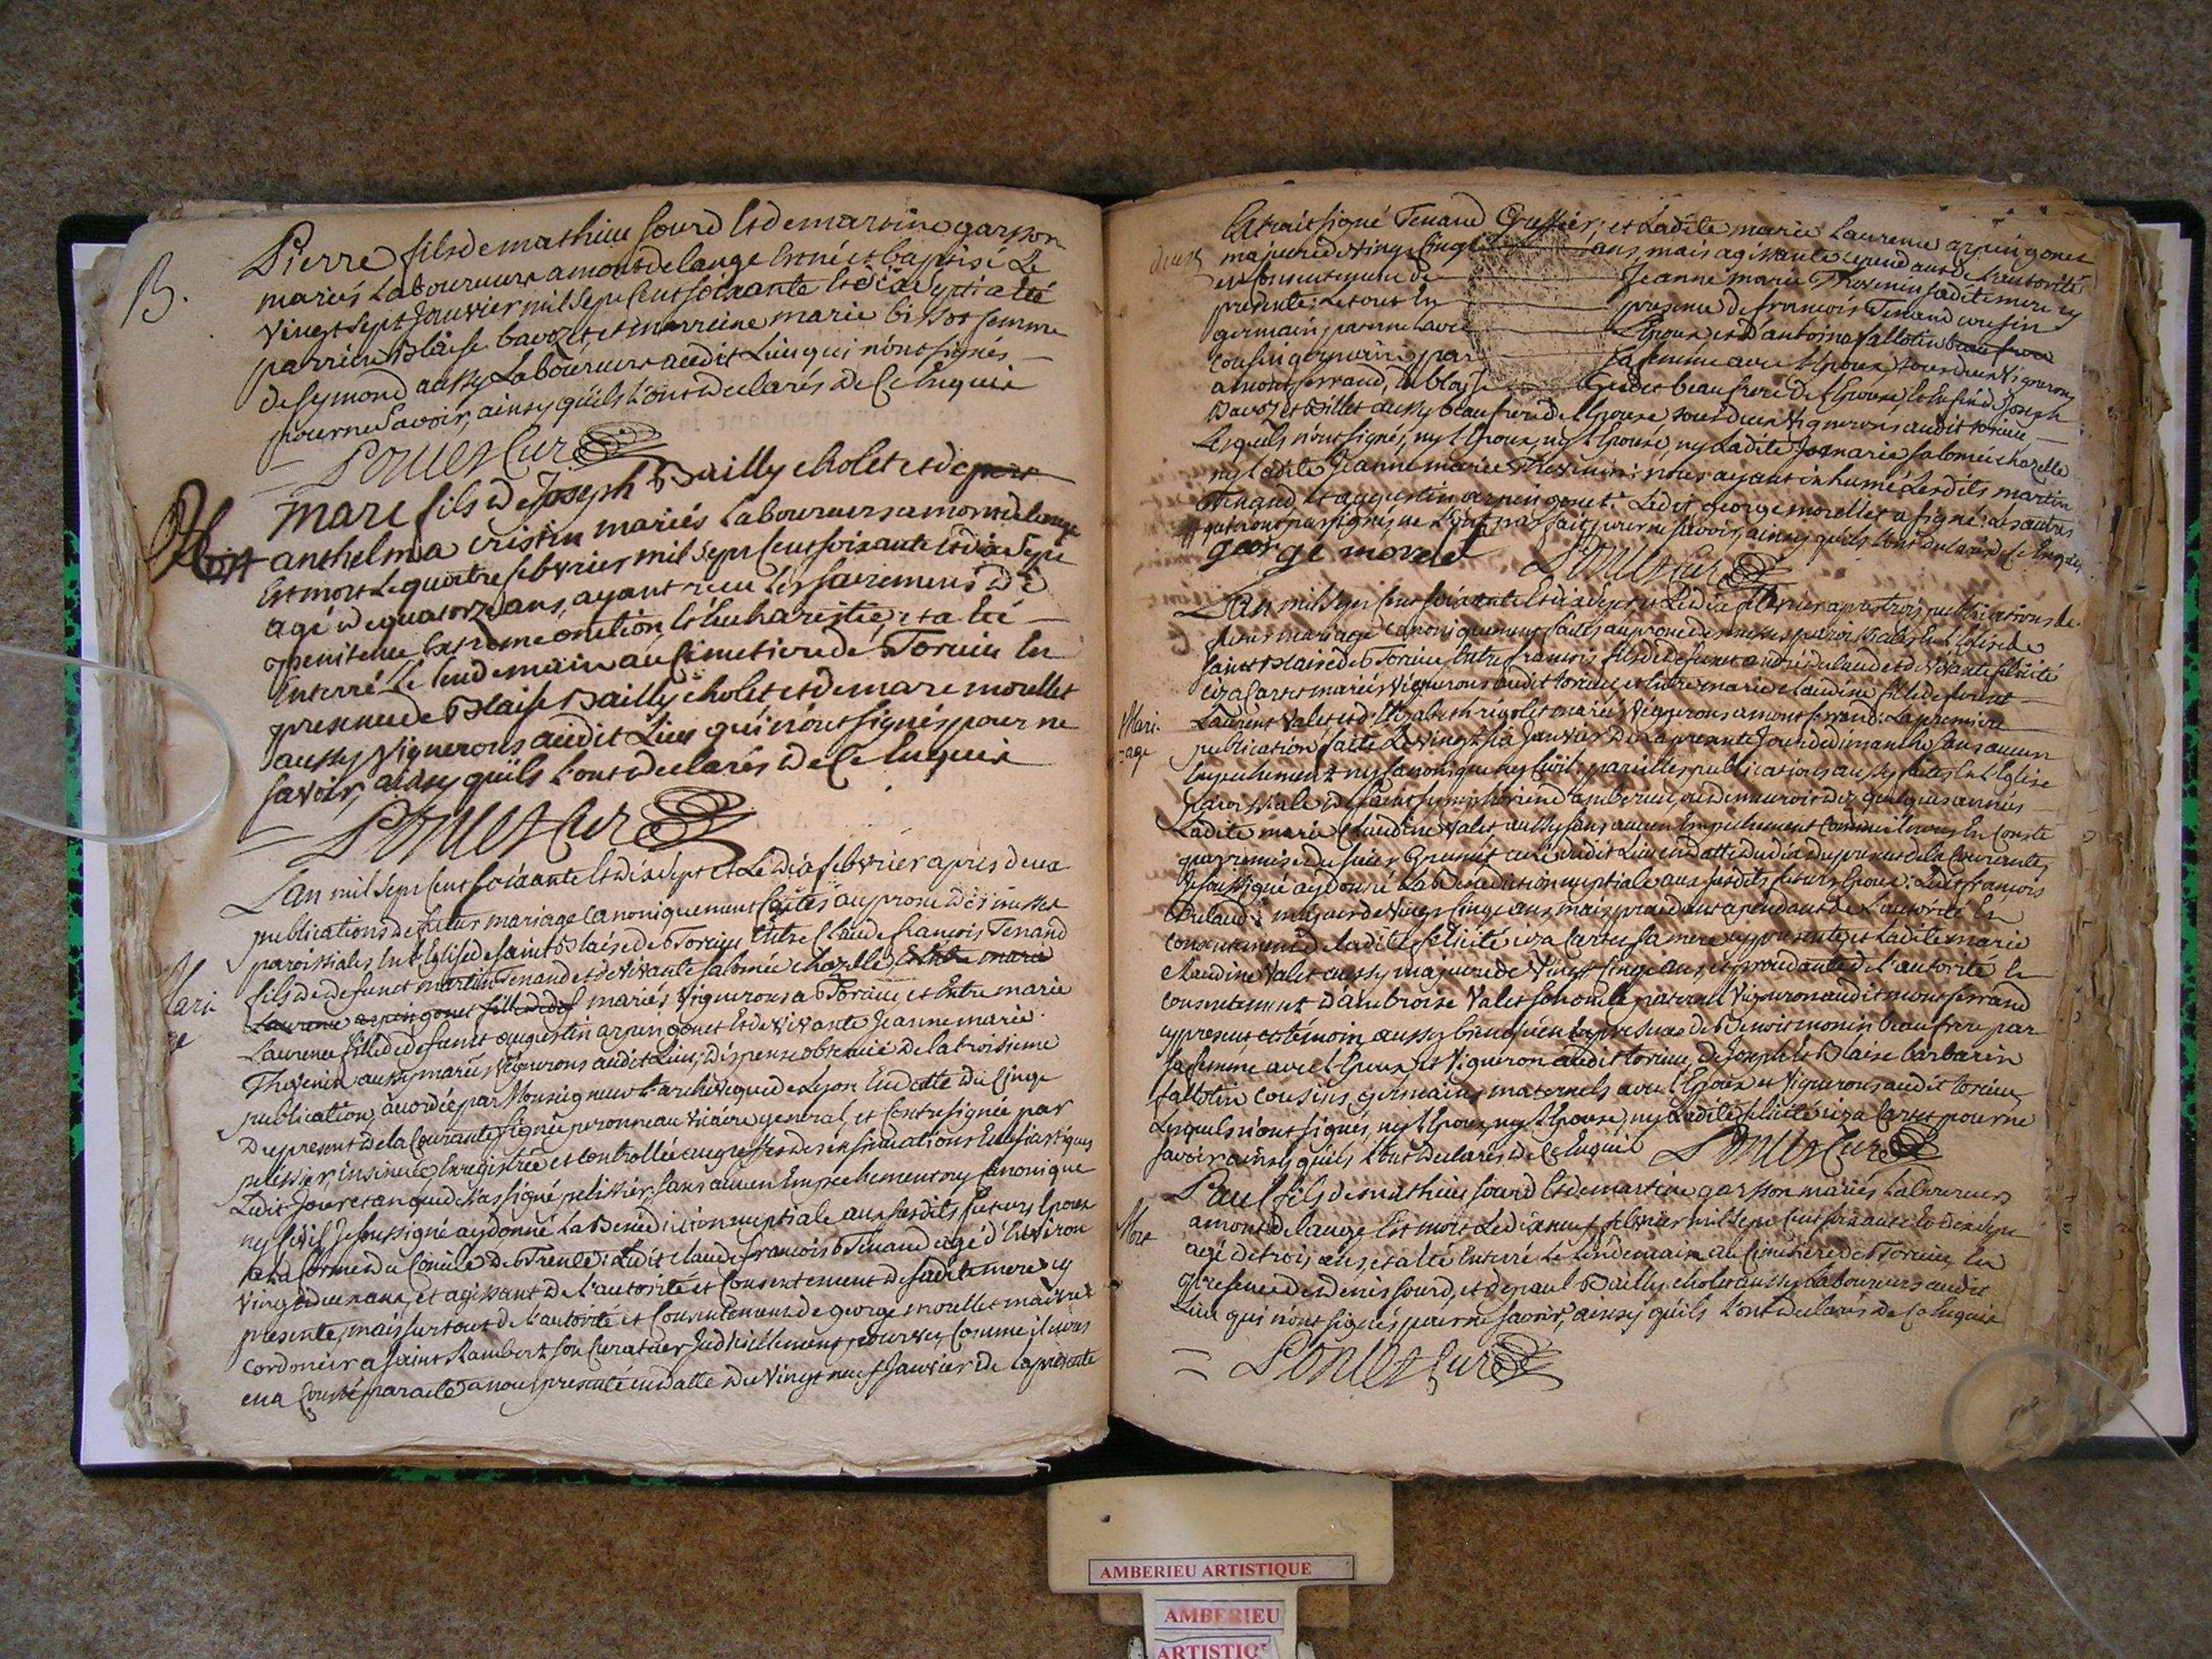 B.
Pierre fils de mathieu sourd Et de martine garsson
mariés Laboureurs a mont de lange Est né et baptisé Le
vingt sept Janvier mil sept Cent soixante Et dix sept, a été
parrein Blaise bavozet et marreine marie bissot femme
de symond aussy Laboureurs audit Lieu qui n'ont signés
pour ne Savoir, ainsy qu'ils L'ont declarés de Ce Enquis
Mort
marc fils de Joseph Bailly cholet et de
anthelma cristin mariés Laboureurs a mont de lange
Est mort Le quatre febvrier mil sept Cent soixante Et dix sept
agé de quatorze ans, ayant reçu Les sacremens de
penitence Extreme onction, Et Eucharistie, et a été
Enterré Le lendemain au Cimetiere de Torcieu En
presence de Blaise Bailly cholet et de marc morellet
aussy vignerons audit Lieu qui n'ont signés pour ne
savoir, ainsy qu'ils L'ont declarés de Ce Enquis
L'an mil sept Cent soixante Et dix sept et Le dix febvrier apres deux
publications de futur mariage Canoniquement faites au prone des messes
paroissiales En L'Eglise de saint Blaise de Torcieu Entre Claude françois Tenand
fils de defunct martin Tenand et de vivante salomée chazelle Entre marie
Laurence arpin gonet fille de def mariés vignerons a Torcieu et Entre marie
Mari
ge
Laurence fille de defunct augustin arpin gonet Et de vivante Jeanne marie
Thevenin aussy mariés vignerons audit Lieu, dispense obtenue de la troisieme
publication, accordée par Monseigneur L'archeveque de Lyon En datte du Cinq
du present de la Courante, signée peronneau vicaire general, et Contresignée par
pelissier, insinuée, Enregistrée et Controllée au greffe des insinuations Ecclesiastiques
Ledit Jour et an que dessus signé pelissier, sans aucun Empechement ny Canonique
ny Civil Je soussigné ay donné La Benediction nuptiale aux susdits futurs Epoux
a la forme du Concile de Trente: Ledit claude françois Tenand agé d'Environ
vingt deux ans, et agissant de L'autorité et Consentement de sadite mere cy
presente, mais surtout de L'autorité et Consentement de george morellet maitre
cordonnier a saint Rambert son Curateur Judiciellement pourvu, Comme il nous
en a Consté par acte a nous presenté En datte du vingt neuf Janvier de la presente
Extrait signé Tenand Greffier; et Ladite marie Laurence arpin gonet
majeure de vingt Cinq ans, mais agissante cependant de L'autorité
et Consentement de Jeanne marie Thevenin sadite mere cy
presente: Le tout En presence de françois Tenand cousin
germain paternel avec L'Epoux, et d'antoine fallotin
cousin germain par sa femme avec L'Epoux, tous deux vignerons
a montferrand, de blaise beaufrere de L'Epouse, et de Joseph
aussy beaufrere de L'Epouse tous deux vignerons audit torcieu
Lesquels n'ont signés, ny L'Epoux, ny L'Epouse, ny Ladite salomée chazelle
ny Ladite Jeanne marie Thevenin: nous ayant inhumé Lesdits martin
Tenand Et augustin arpin gonet: Ledit george morellet a signé: Les autres
qui n'ont pas signés, ne L'ont pas fait, pour ne savoir, ainsy qu'ils L'ont declarés de Ce Enquis
george morelet
L'an mil sept Cent soixante Et dix sept et Le dix febvrier apres trois publications de
futur mariage Canoniquement faites au prone des messes paroissiales En L'Eglise de
saint Blaise de Torcieu, Entre françois fils de defunct andré Dulaud et de vivante felicité
mariés vignerons audit torcieu, et Entre marie claudine fille de defunct
Mari-
-age
Laurent Valet et d'Elizabeth rigolet mariés vignerons a montferrand: La premiere
publication faite Le vingt six Janvier de La presente Jour de dimanche sans aucun
Empechement ny Canonique ny Civil: pareilles publications aussy faites En L'Eglise
paroissiale de saint symphorien d'amberieu, ou demeuroit dès quelques années
Ladite marie Claudine Valet aussy sans aucun Empechement Comme il nous En Conste
par remise du sieur Grumet curé dudit Lieu en datte du dix du present de la Courante,
Je soussigné ay donné La Benediction nuptiale aux susdits futurs Epoux: Ledit françois
Dulaud: majeur de vingt Cinq ans, mais procedant cependant de L'autorité Et
consentement de ladite felicité sa mere cy presente, et Ladite marie
claudine Valet aussy majeure de vingt Cinq ans, et procedante de L'autorité Et
consentement d'ambroise Valet son oncle paternel vigneron audit montferrand
cy present et témoin aussy bien qu'en presence de Benoit monin beaufrere par
sa femme avec L'Epoux, et vigneron audit torcieu, de Joseph et Blaise barbarin
fallotin cousins germains maternels avec L'Epoux et vignerons audit torcieu
Lesquels n'ont signés, ny L'Epoux, ny L'Epouse, ny Ladite felicité pour ne
savoir ainsy qu'ils L'ont declarés de Ce Enquis
Mort
Paul fils de mathieu sourd Et de martine garsson mariés Laboureurs
a mont de lange Est mort Le dix neuf febvrier mil sept Cent soixante Et dix sept
agé de trois ans, et a été Enterré Le Lendemain au Cimetiere de Torcieu En
presence de denis sourd, et de paul Bailly cholet aussy Laboureurs audit
Lieu qui n'ont signés pour ne savoir, ainsy qu'ils L'ont declarés de Ce Enquis
AMBERIEU ARTISTIQUE
AMBERIEU
ARTISTIQ